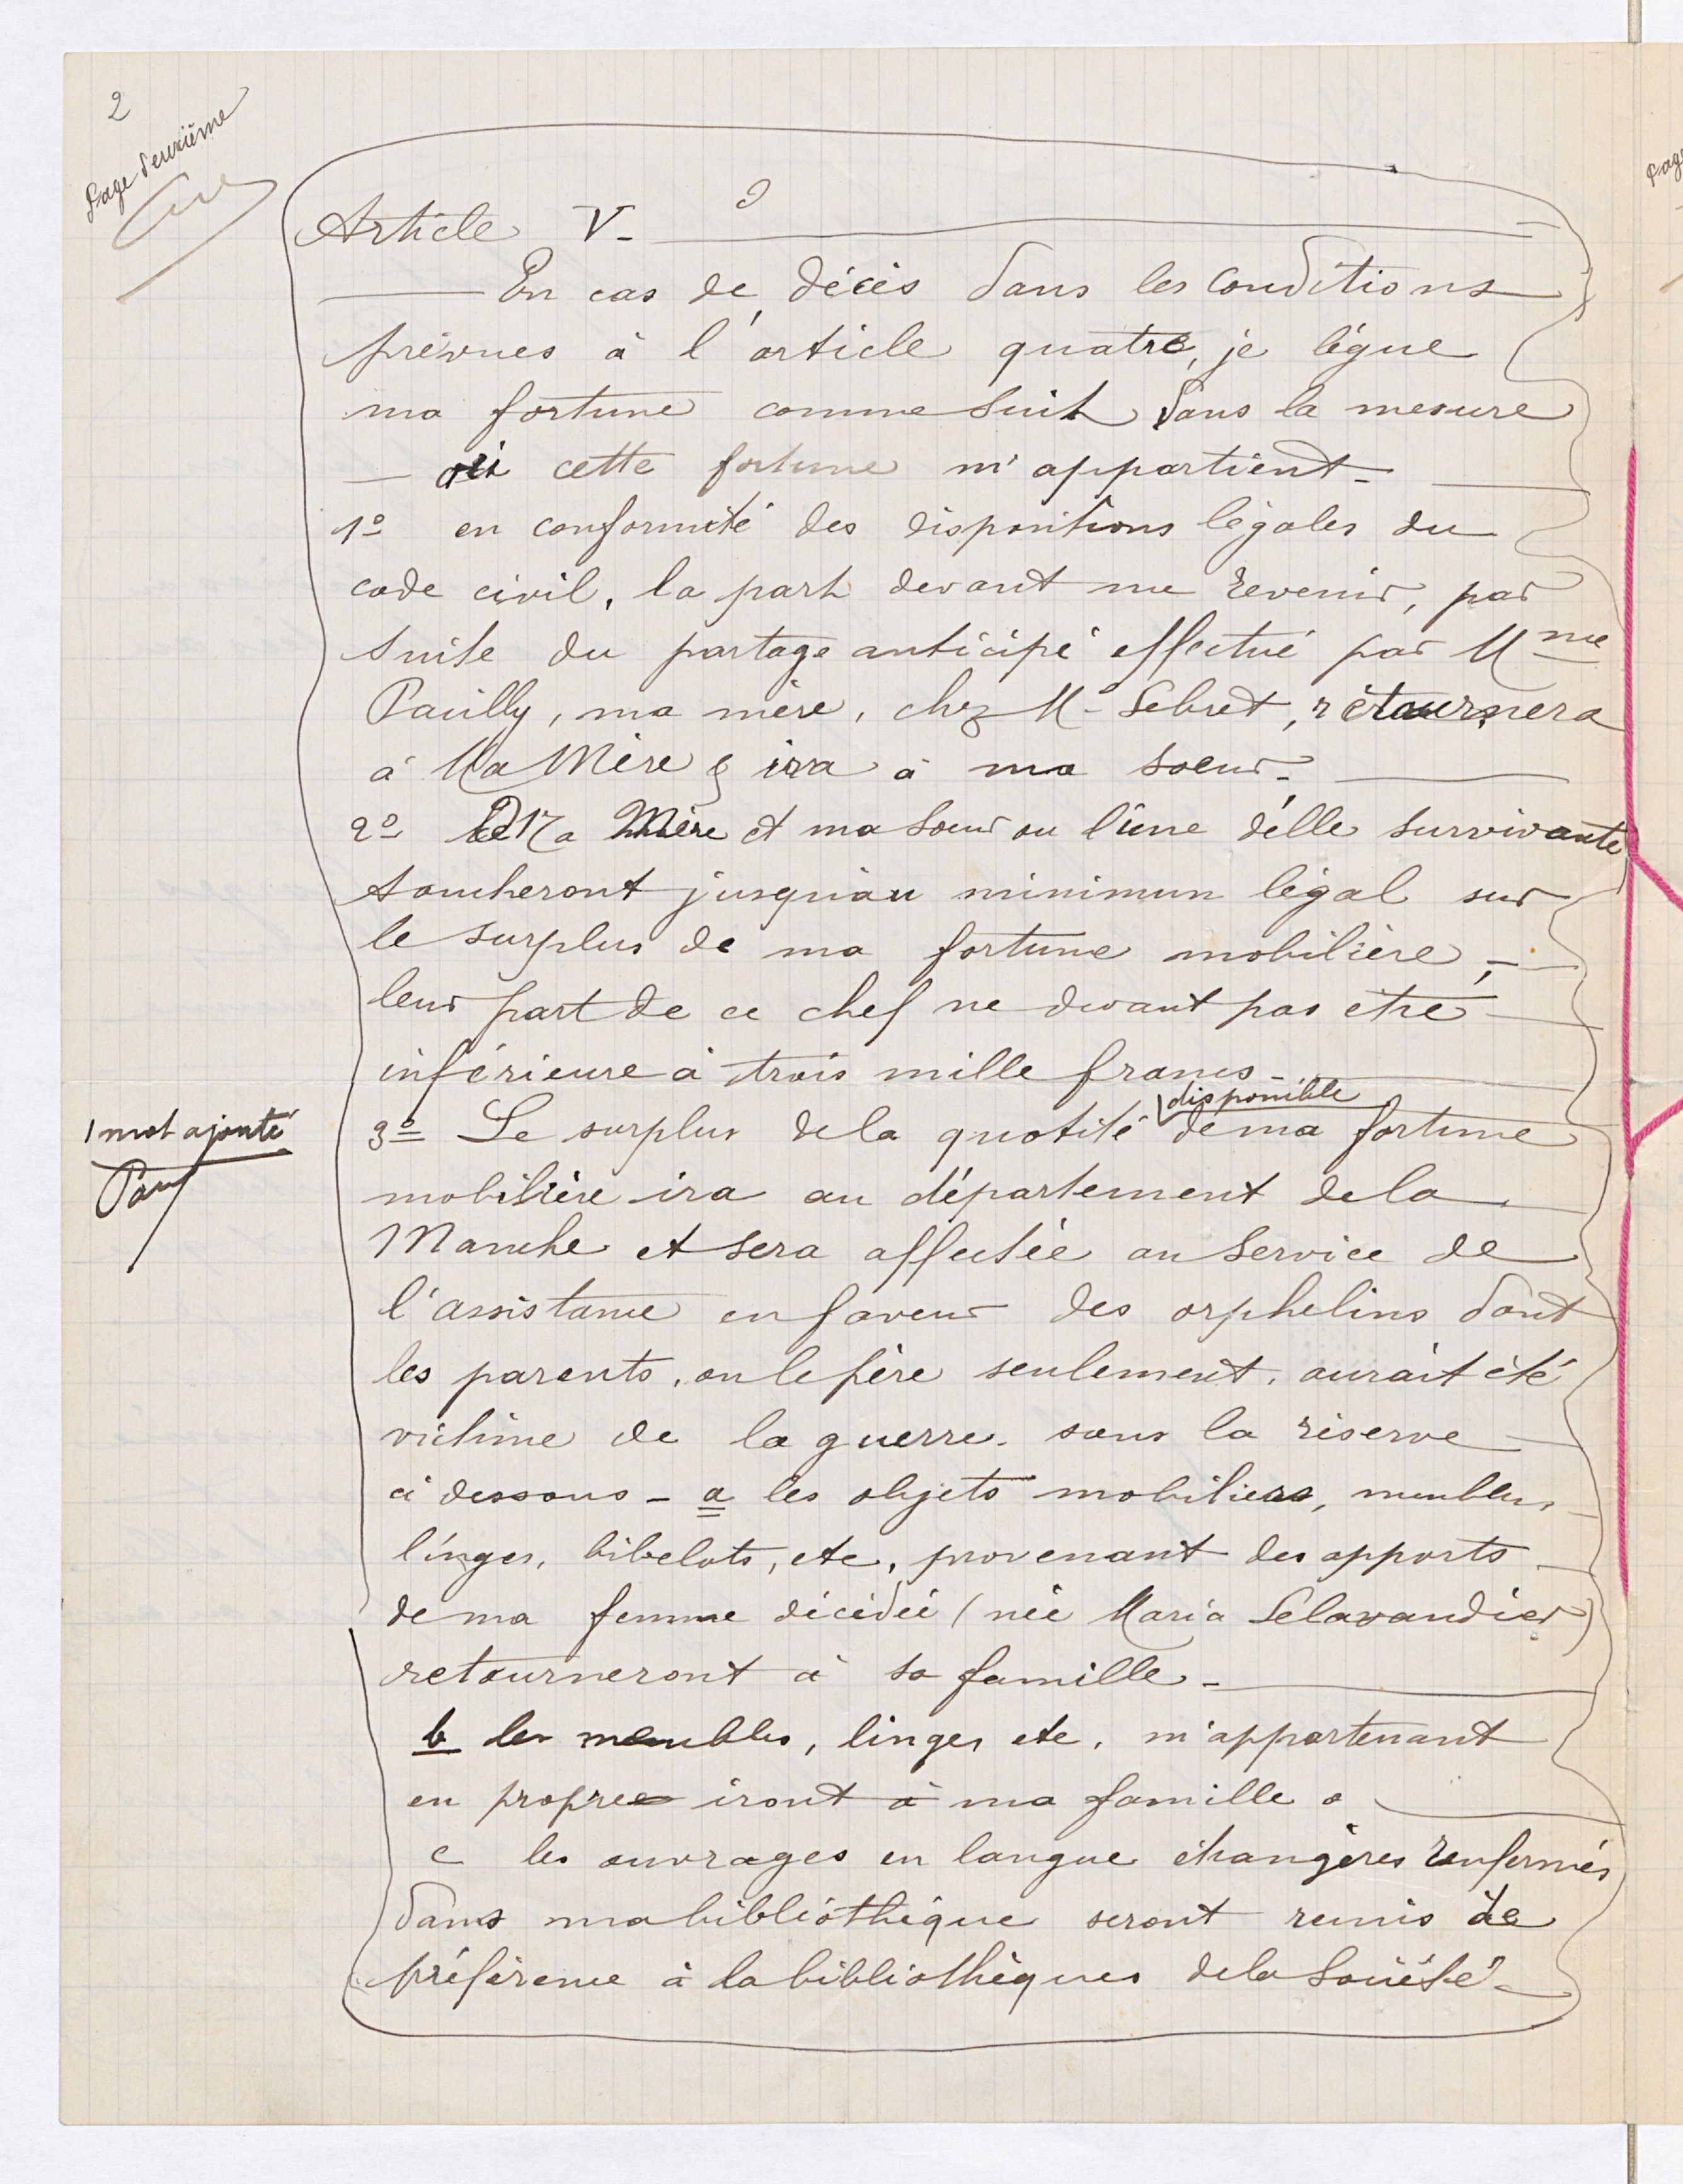 2
Page deuxième
Article V-
En cas de décès dans les conditions
prévues à l'article quatre, je lègue
ma fortune comme suit dans la mesure
où cette fortune m'appartient-
1º en conformité des dispositions légales du
code civil, la part devant me revenir, par
suite du partage anticipé effectué par Mme
Pailly, ma mère, chez Me Lebret, rétournera
à Ma Mère & ira à ma soeur-
2º Ma Mère et ma soeur ou l'une d'elle survivante
toucheront jusqu'au minimun légal sur
le surplus de ma fortune mobilière,-
leur part de ce chef ne devant pas être
inférieure à trois mille francs-
disponible
3º Le surplus de la quotité de ma fortune
1 mot ajouté
mobilière ira au département de la
Manche et sera affectée au service de
l'assistance en faveur des orphelins dont
les parents, ou le père seulement, aurait été
victime de la guerre. sous la réserve
ci dessous - a les objets mobiliers, meubles,
linges, bibelots, etc, provenant des apports
de ma femme décédée (née Maria Lelavandier)
retourneront à sa famille-
b les meubles, linges etc, m'appartenant
en propre iront à ma famille
c les ouvrages en langue étrangères renfermés
dans ma bibliothèque seront remis de
préférence à la bibliothèques de la Société-